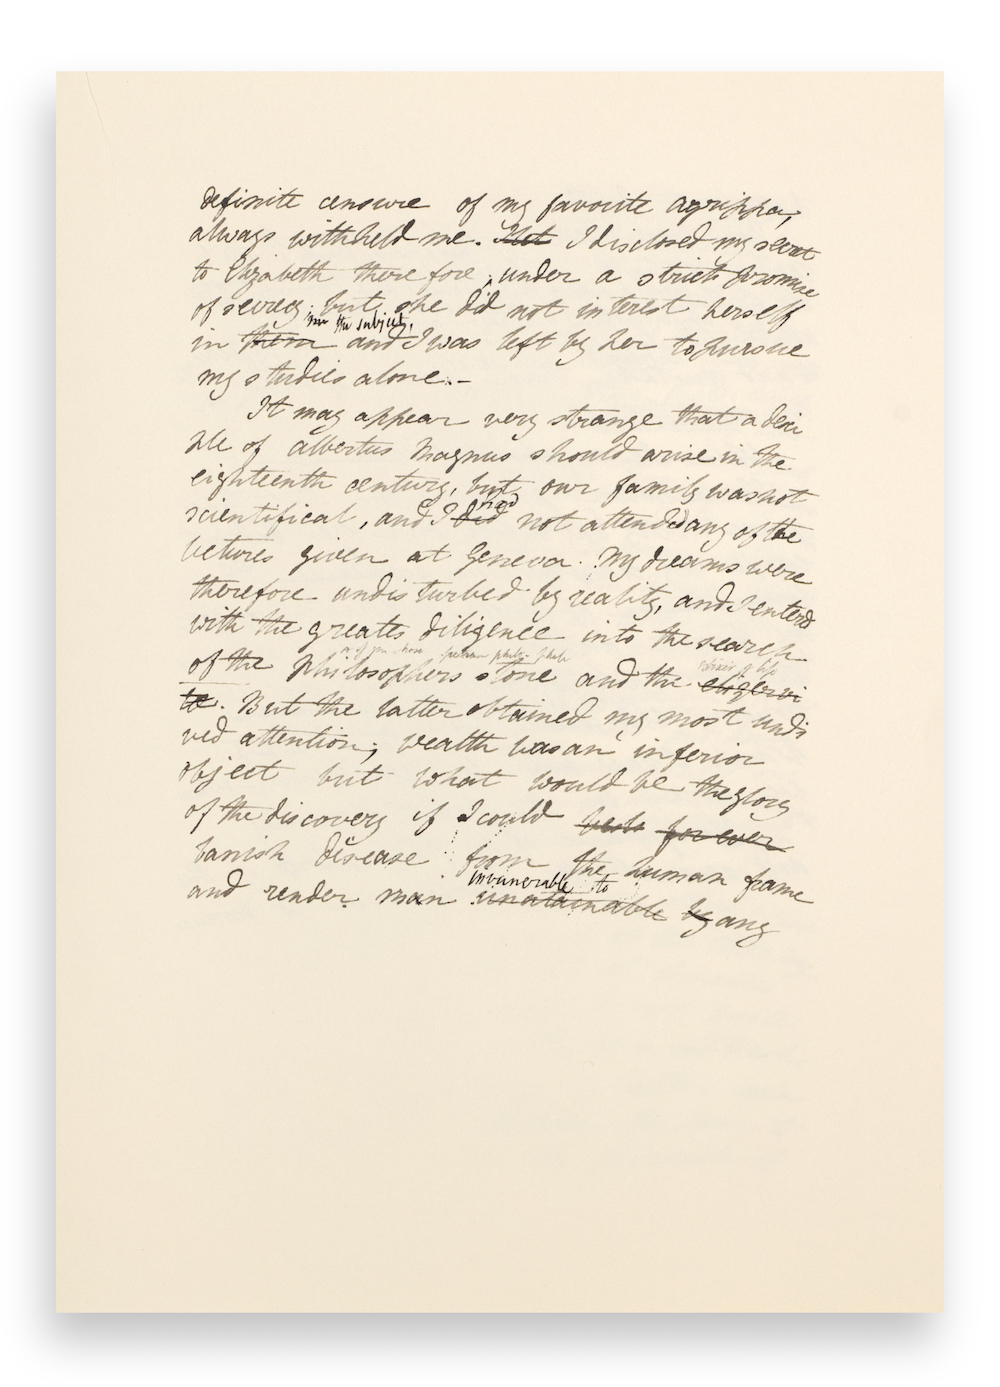 definite censure of my favorite agrippa,
always withheld me. But I disclosed my secret
to Elizabeth therefore, under a strict promise
of secrecy, but she did not interest herself
the subject,
in them and I was left by her to pursue
my studies alone.—
It may appear very strange that a disci
ple of albertus magnus should arise in the
eighteenth century, but our family was not
had
scientifical, and I did not attended any of the
lectures given at Geneva. My dreams were
therefore undisturbed by reality, and I enterd
with the greates diligence into the search
elixir of life
of the philosophers stone and the eliger vi
te. But the latter obtained my most undi
ved attention; wealth was an inferior
object but what would be the glory
of the discovery if I could for ever
banish disease from the human frame
invunerable to
and render man unatainable by any